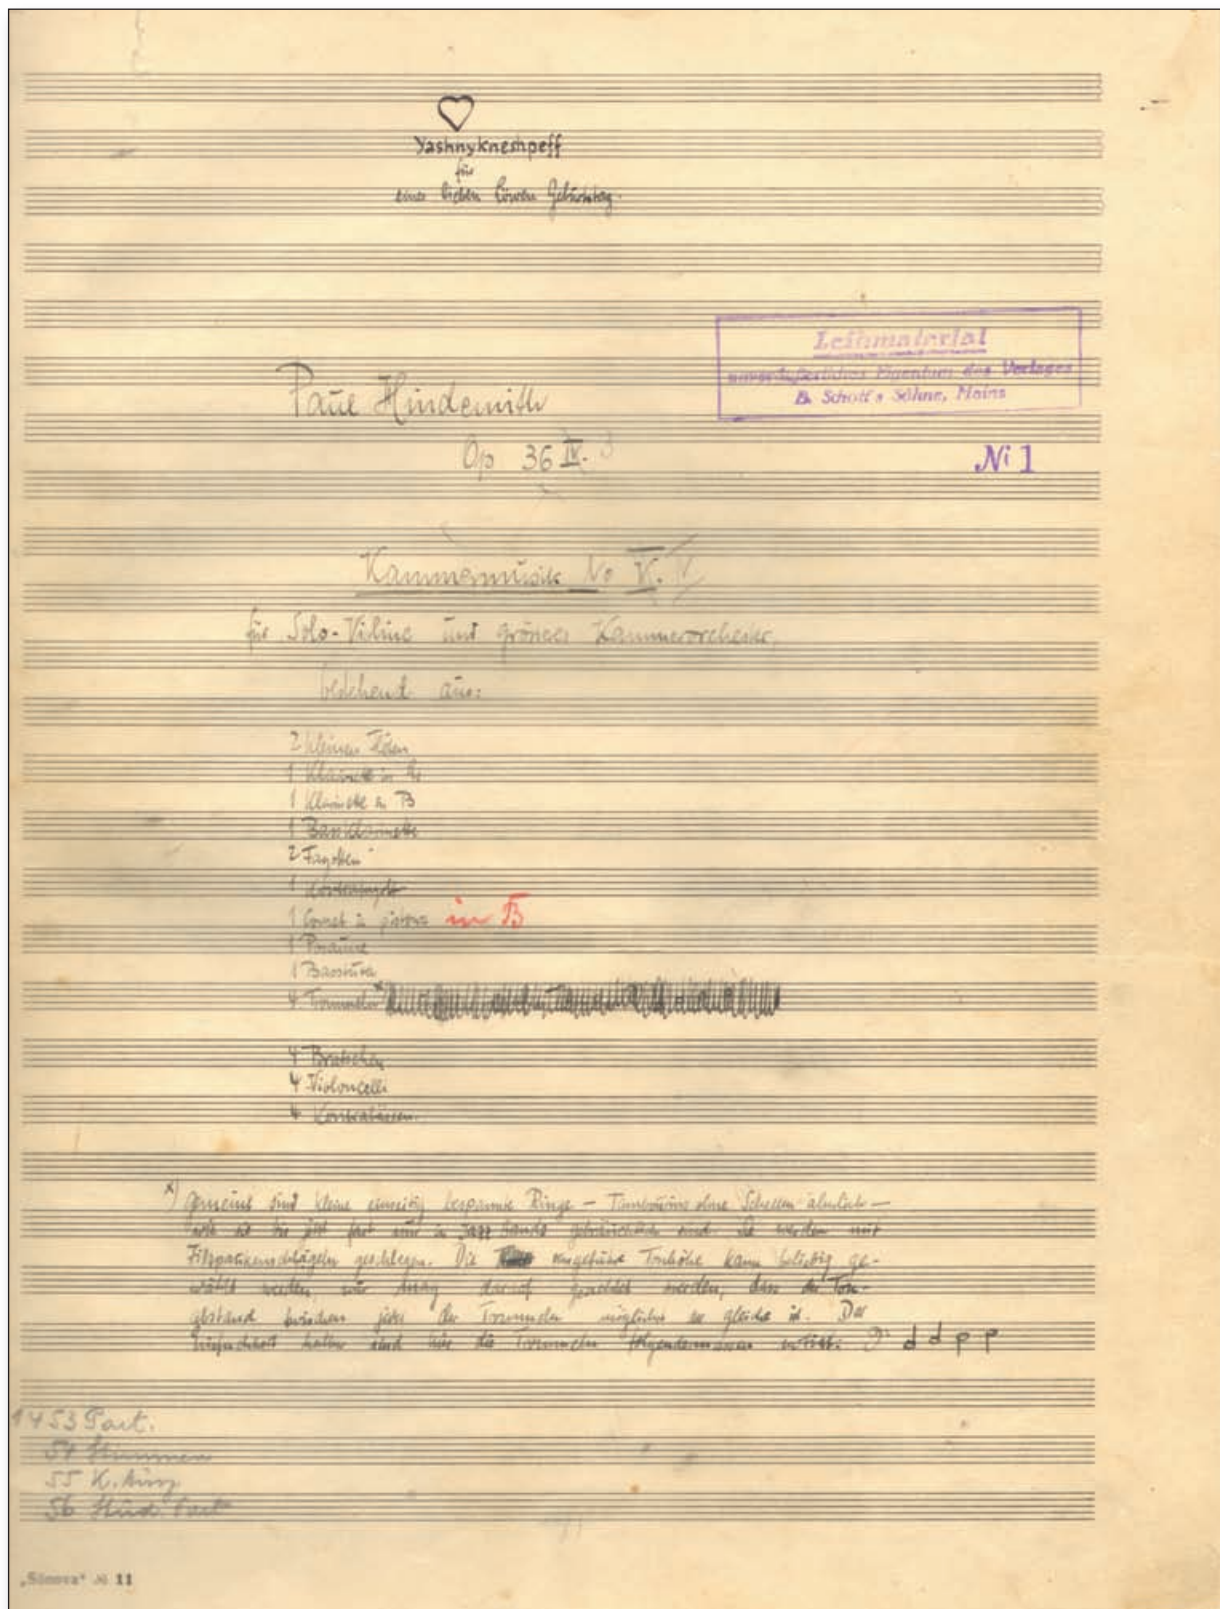 Yashnykneshpeff
für
eines lieben Löwen Geburtstag.
Leihmaterial
unveräußerliches Eigentum des Verlages
B. Schott's Söhne, Mainz
Paul Hindemith
Op 36 IV. 3
№ 1
Kammermusik No V. IV
für Solo-Violine und grösseres Kammerorchester,
bestehend aus:
2 kleinen Flöten
1 Klarinette in Es
1 Klarinette in B
1 Bassklarinette
2 Fagotten
1 Kontrafagott
1 Cornet à pistons in B
1 Posaune
1 Basstuba
4 Trommeln*
4 Bratschen
4 Violoncelli
4 Kontrabässen.
*) gemeint sind kleine einseitig bespannte Ringe – Tambourins ohne Schellen ähnlich –
wie sie bis jetzt fast nur in Jazz bands gebräuchlich sind. Sie werden mit
Filzpaukenschlägeln geschlagen. Die ungefähre Tonhöhe kann beliebig ge-
wählt werden, nur mag darauf geachtet werden, dass der Ton-
abstand zwischen jeder der Trommeln möglichst der gleiche ist. Der
Einfachheit halber sind hier die Trommeln folgendermassen notiert:
1453 Part.
54 Stimmen
55 K. Ausz.
56 Stud. Part
„Sünova" № 11